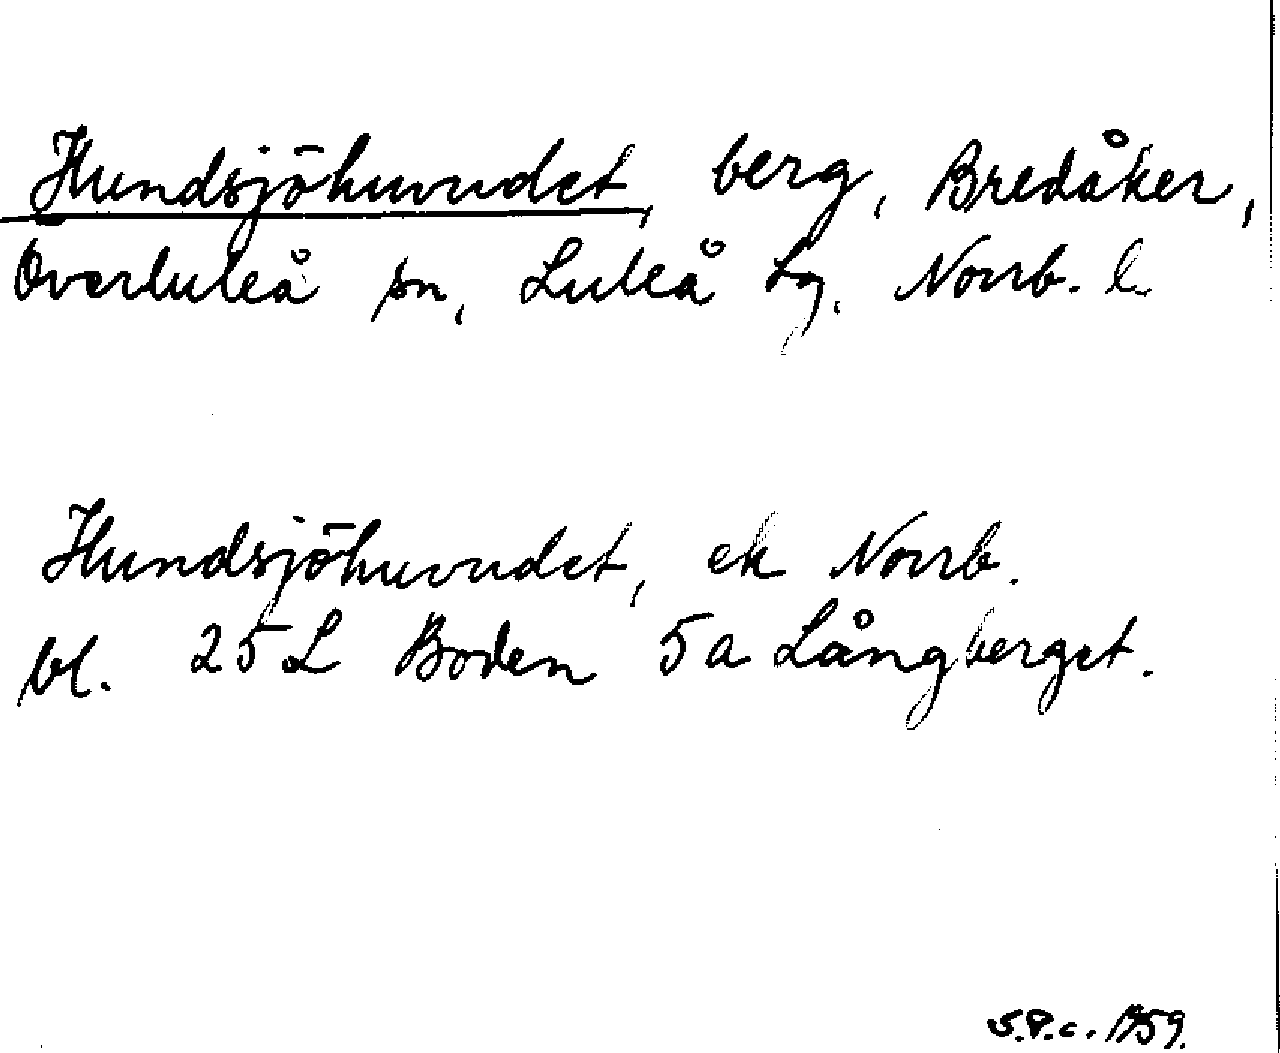 Hundsjöhuvudet, berg, Bredåker,
Överluleå sn, Luleå tg, Norrb. l.
Hundsjöhuvudet, ek Norrb.
bl. 25 L Boden 5 a Långberget.
S.P.c. 1959.